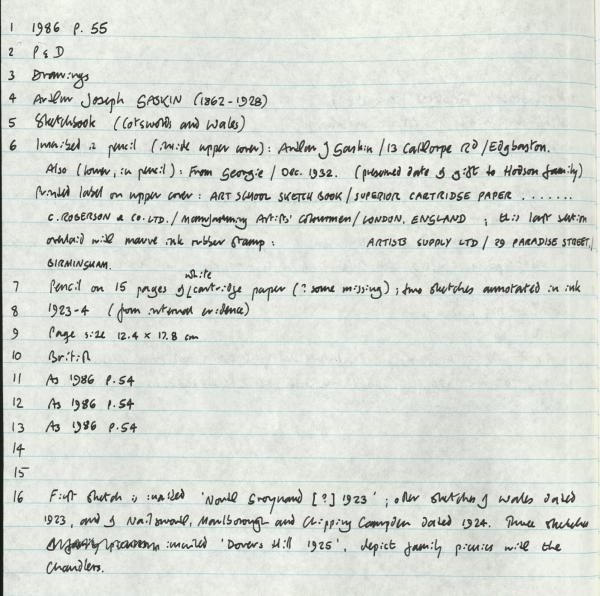 1 1986 P. 55
2 P & D
3 Drawings
4 Arthur Joseph GASKIN (1862-1928)
5 Sketchbook (Cotswolds and Wales)
6 Inscribed in pencil (inside upper cover): Arthur J Gaskin / 13 Calthorpe Rd / Edgbaston.
Also (lower, in pencil): From Georgie / Dec. 1932. (presumed date of gift to Hodson family)
Printed label on upper cover: ART SCHOOL SKETCH BOOK / SUPERIOR CARTRIDGE PAPER .......
C. ROBERSON & CO. LTD. / Manufacturing Artists' Colourmen / LONDON. ENGLAND ; this last section
overlaid with mauve ink rubber stamp : ARTISTS SUPPLY LTD / 29 PARADISE STREET,/
BIRMINGHAM.
7 Pencil on 15 pages of white cartridge paper (? some missing) ; two sketches annotated in ink
8 1923-4 (from internal evidence)
9 Page size 12.4 x 17.8 cm
10 British
11 As 1986 P.54
12 As 1986 P.54
13 As 1986 P.54
14
15
16 First sketch is inscribed ' [?] 1923' ; other sketches of Wales dated
1923, and of Nailsworth, Marlborough and Chipping Campden dated 1924. Three sketches
inscribed 'Dovers Hill 1925', depict family picnics with the
Chandlers.